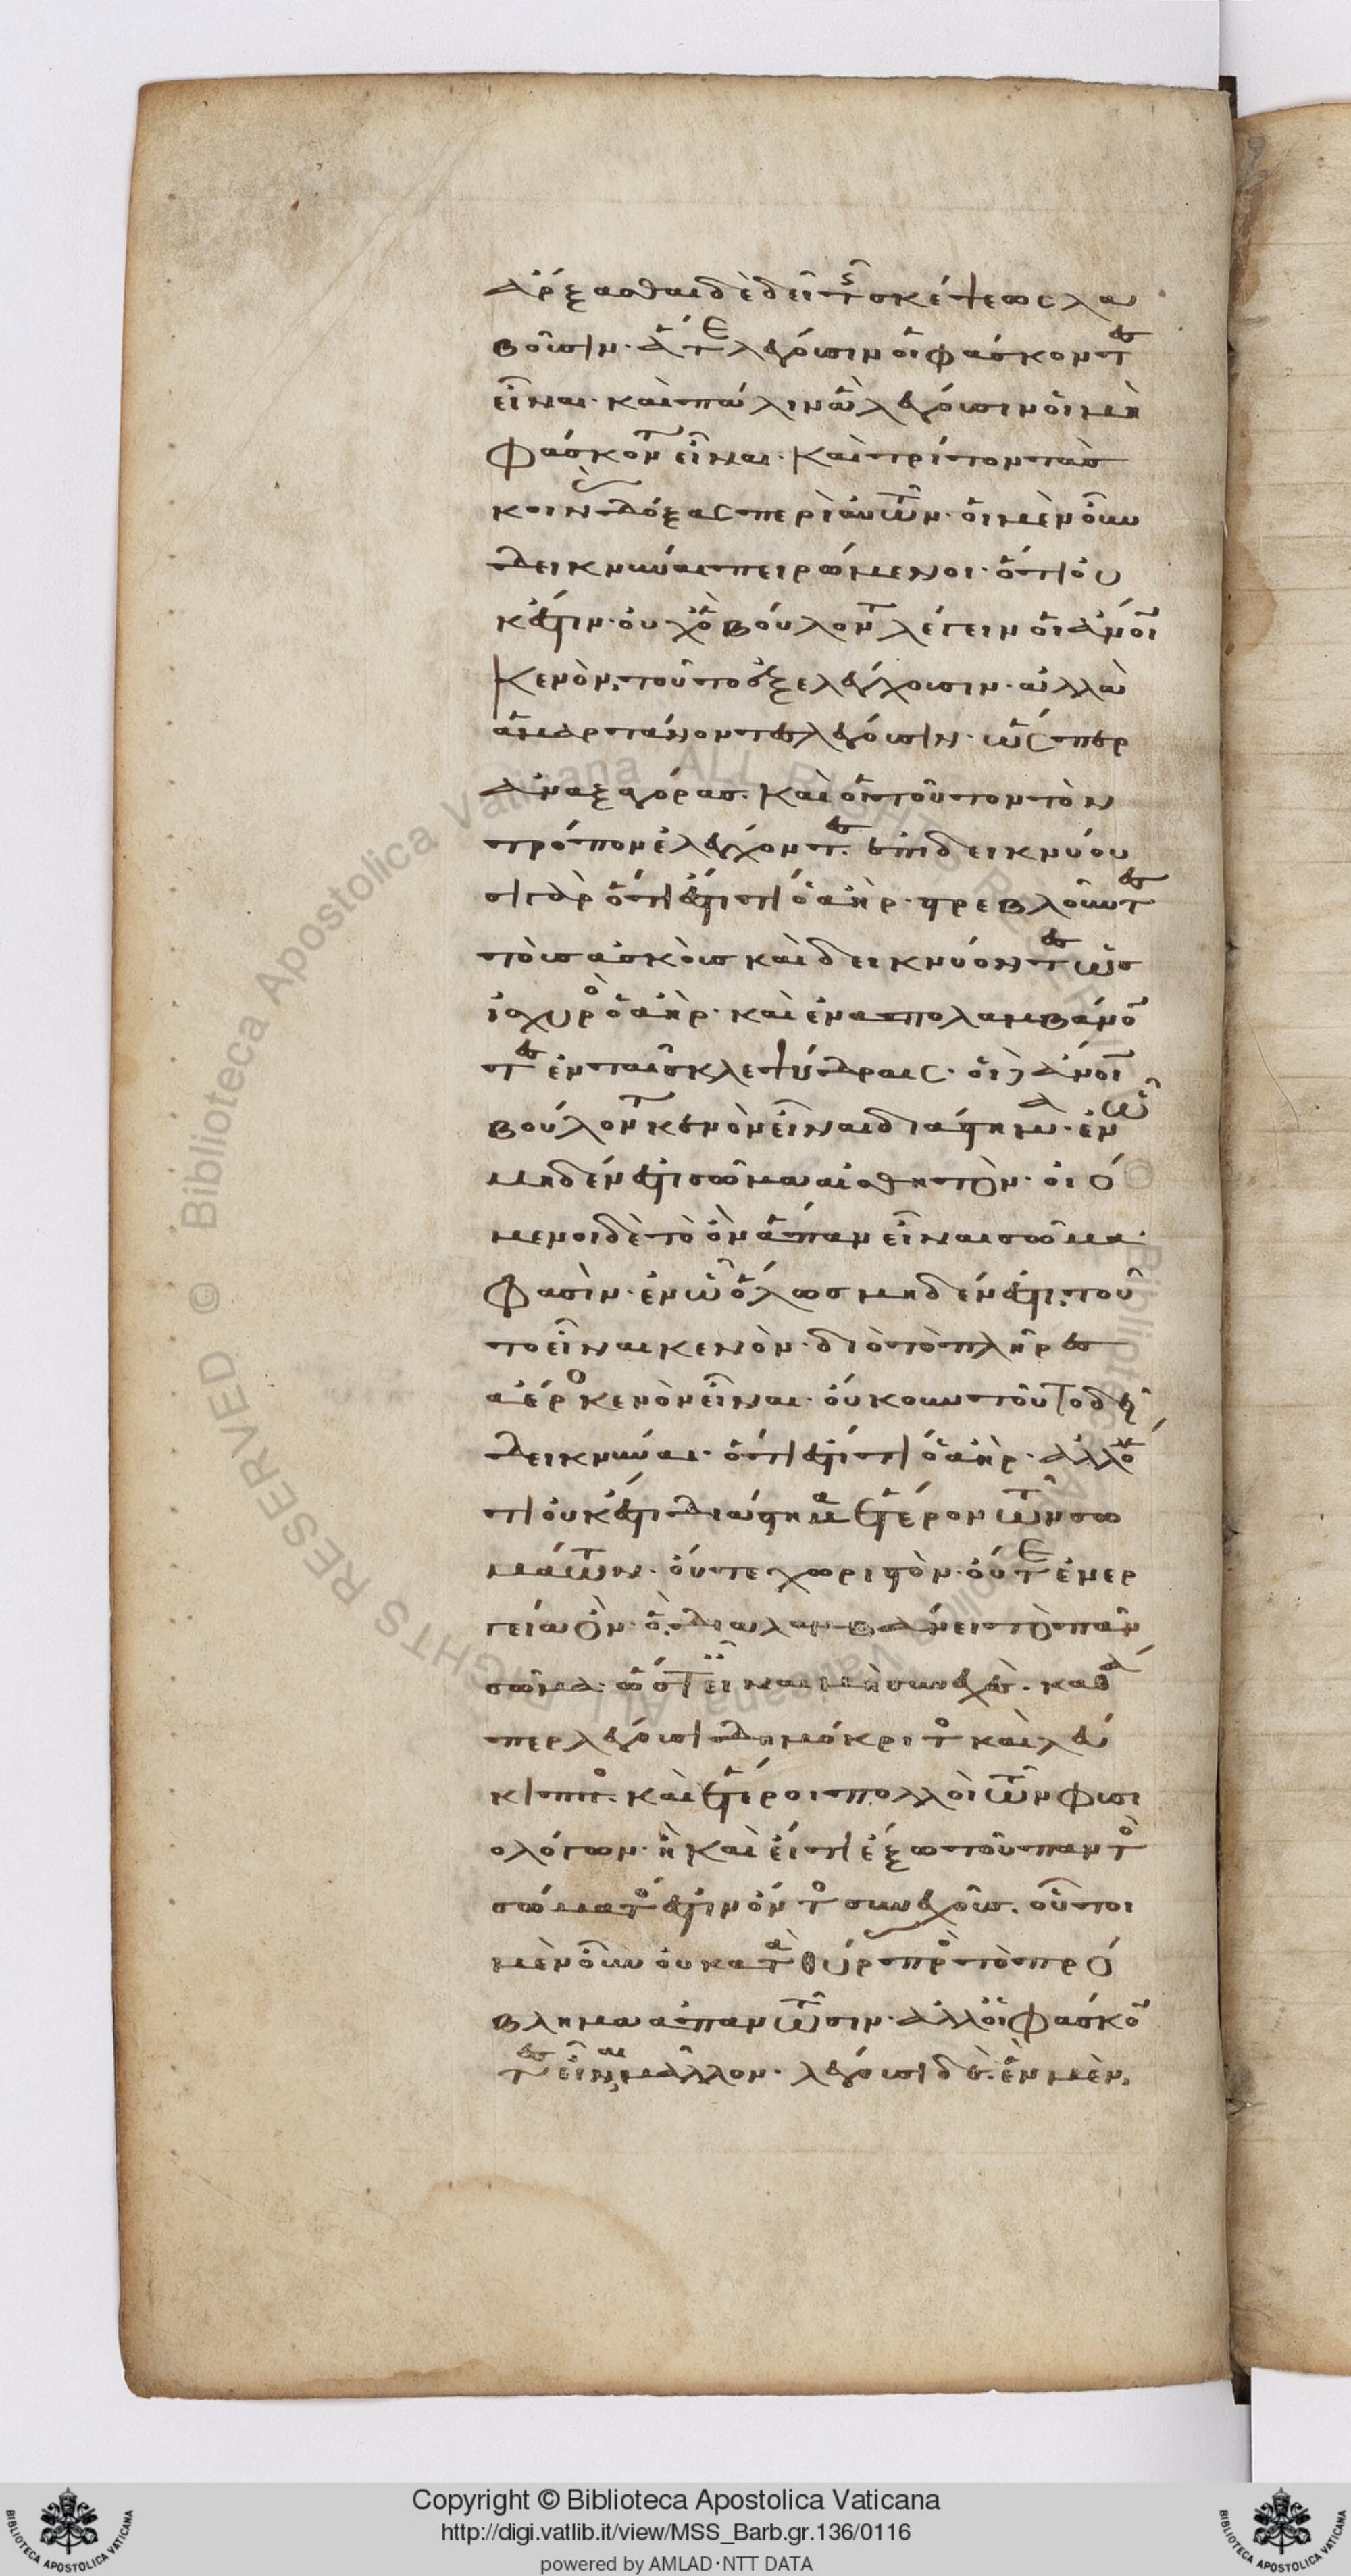 ἄρξασθαι δὲ δεῖ τῆς σκέψεως λα
βοῦσιν· ἅ τε λέγουσιν οἱ φάσκοντες
εἶναι· καὶ πάλιν ἃ λέγουσιν οἱ μὴ
φάσκοντες εἶναι· καὶ τρίτον τὰς
κοινὰς δόξας περὶ αὐτῶν· οἱ μὲν οὖν
δεικνύναι πειρώμενοι· ὅτι οὐ
κ ἔστιν· οὐχ ὃ βούλονται λέγειν οἱ ἄνοι
κενὸν, τοῦτο ἐξελέγχουσιν· ἀλλὰ
ἁμαρτάνοντες λέγουσιν· ὥσπερ
Ἀναξαγόρας· καὶ οἱ τοῦτον τὸν
τρόπον ἐλέγχοντες· ἐπιδεικνύου
σι γὰρ ὅτι ἔστι τι ὁ ἀήρ· στρεβλοῦντες
τοὺς ἀσκοὺς καὶ δεικνύοντες ὡς
ἰσχυρὸς ὁ ἀήρ· καὶ ἐναπολαμβάνον
τες ἐν ταῖς κλεψύδραις· οἱ δὲ ἄνοι
βούλονται κενὸν εἶναι διάστημα· ἐν ᾧ
μηδέν ἐστι σῶμα αἰσθητὸν· οἰό
μενοι δὲ τὸ ὂν ἅπαν εἶναι σῶμα·
φασὶν· ἐν ᾧ ὅλως μηδέν ἐστι, τοῦ
το εἶναι κενὸν· διὸ τὸ πλῆρες
ἀέρος κενὸν εἶναι· οὔκουν τοῦτο δεῖ
δεικνύναι· ὅτι ἔστι τι ὁ ἀήρ· ἀλλ' ὅ
τι οὐκ ἔστι διάστημα ἕτερον τῶν σω
μάτων· οὔτε χωριστὸν· οὔτε ἐνερ
γείᾳ ὂν· ὃ διαλαμβάνει τὸ πᾶν
σῶμα· ὥστε εἶναι μὴ συνεχὲς· καθά
περ λέγουσι Δημόκριτος καὶ Λεύ
κιππος· καὶ ἕτεροι πολλοὶ τῶν φυσι
ολόγων· ἢ καὶ εἴ τι ἔξω τοῦ παντὸς
σώματός ἐστιν ὄντος συνεχοῦς· οὗτοι
μὲν οὖν οὐ κατὰ θύρας πρὸς τὸ πρό
βλημα ἀπαντῶσιν· ἀλλ' οἱ φάσκον
τες εἶναι μᾶλλον· λέγουσι δὲ· ἓν μὲν,
Copyright © Biblioteca Apostolica Vaticana
http://digi.vatlib.it/view/MSS_Barb.gr.136/0116
powered by AMLAD·NTT DATA